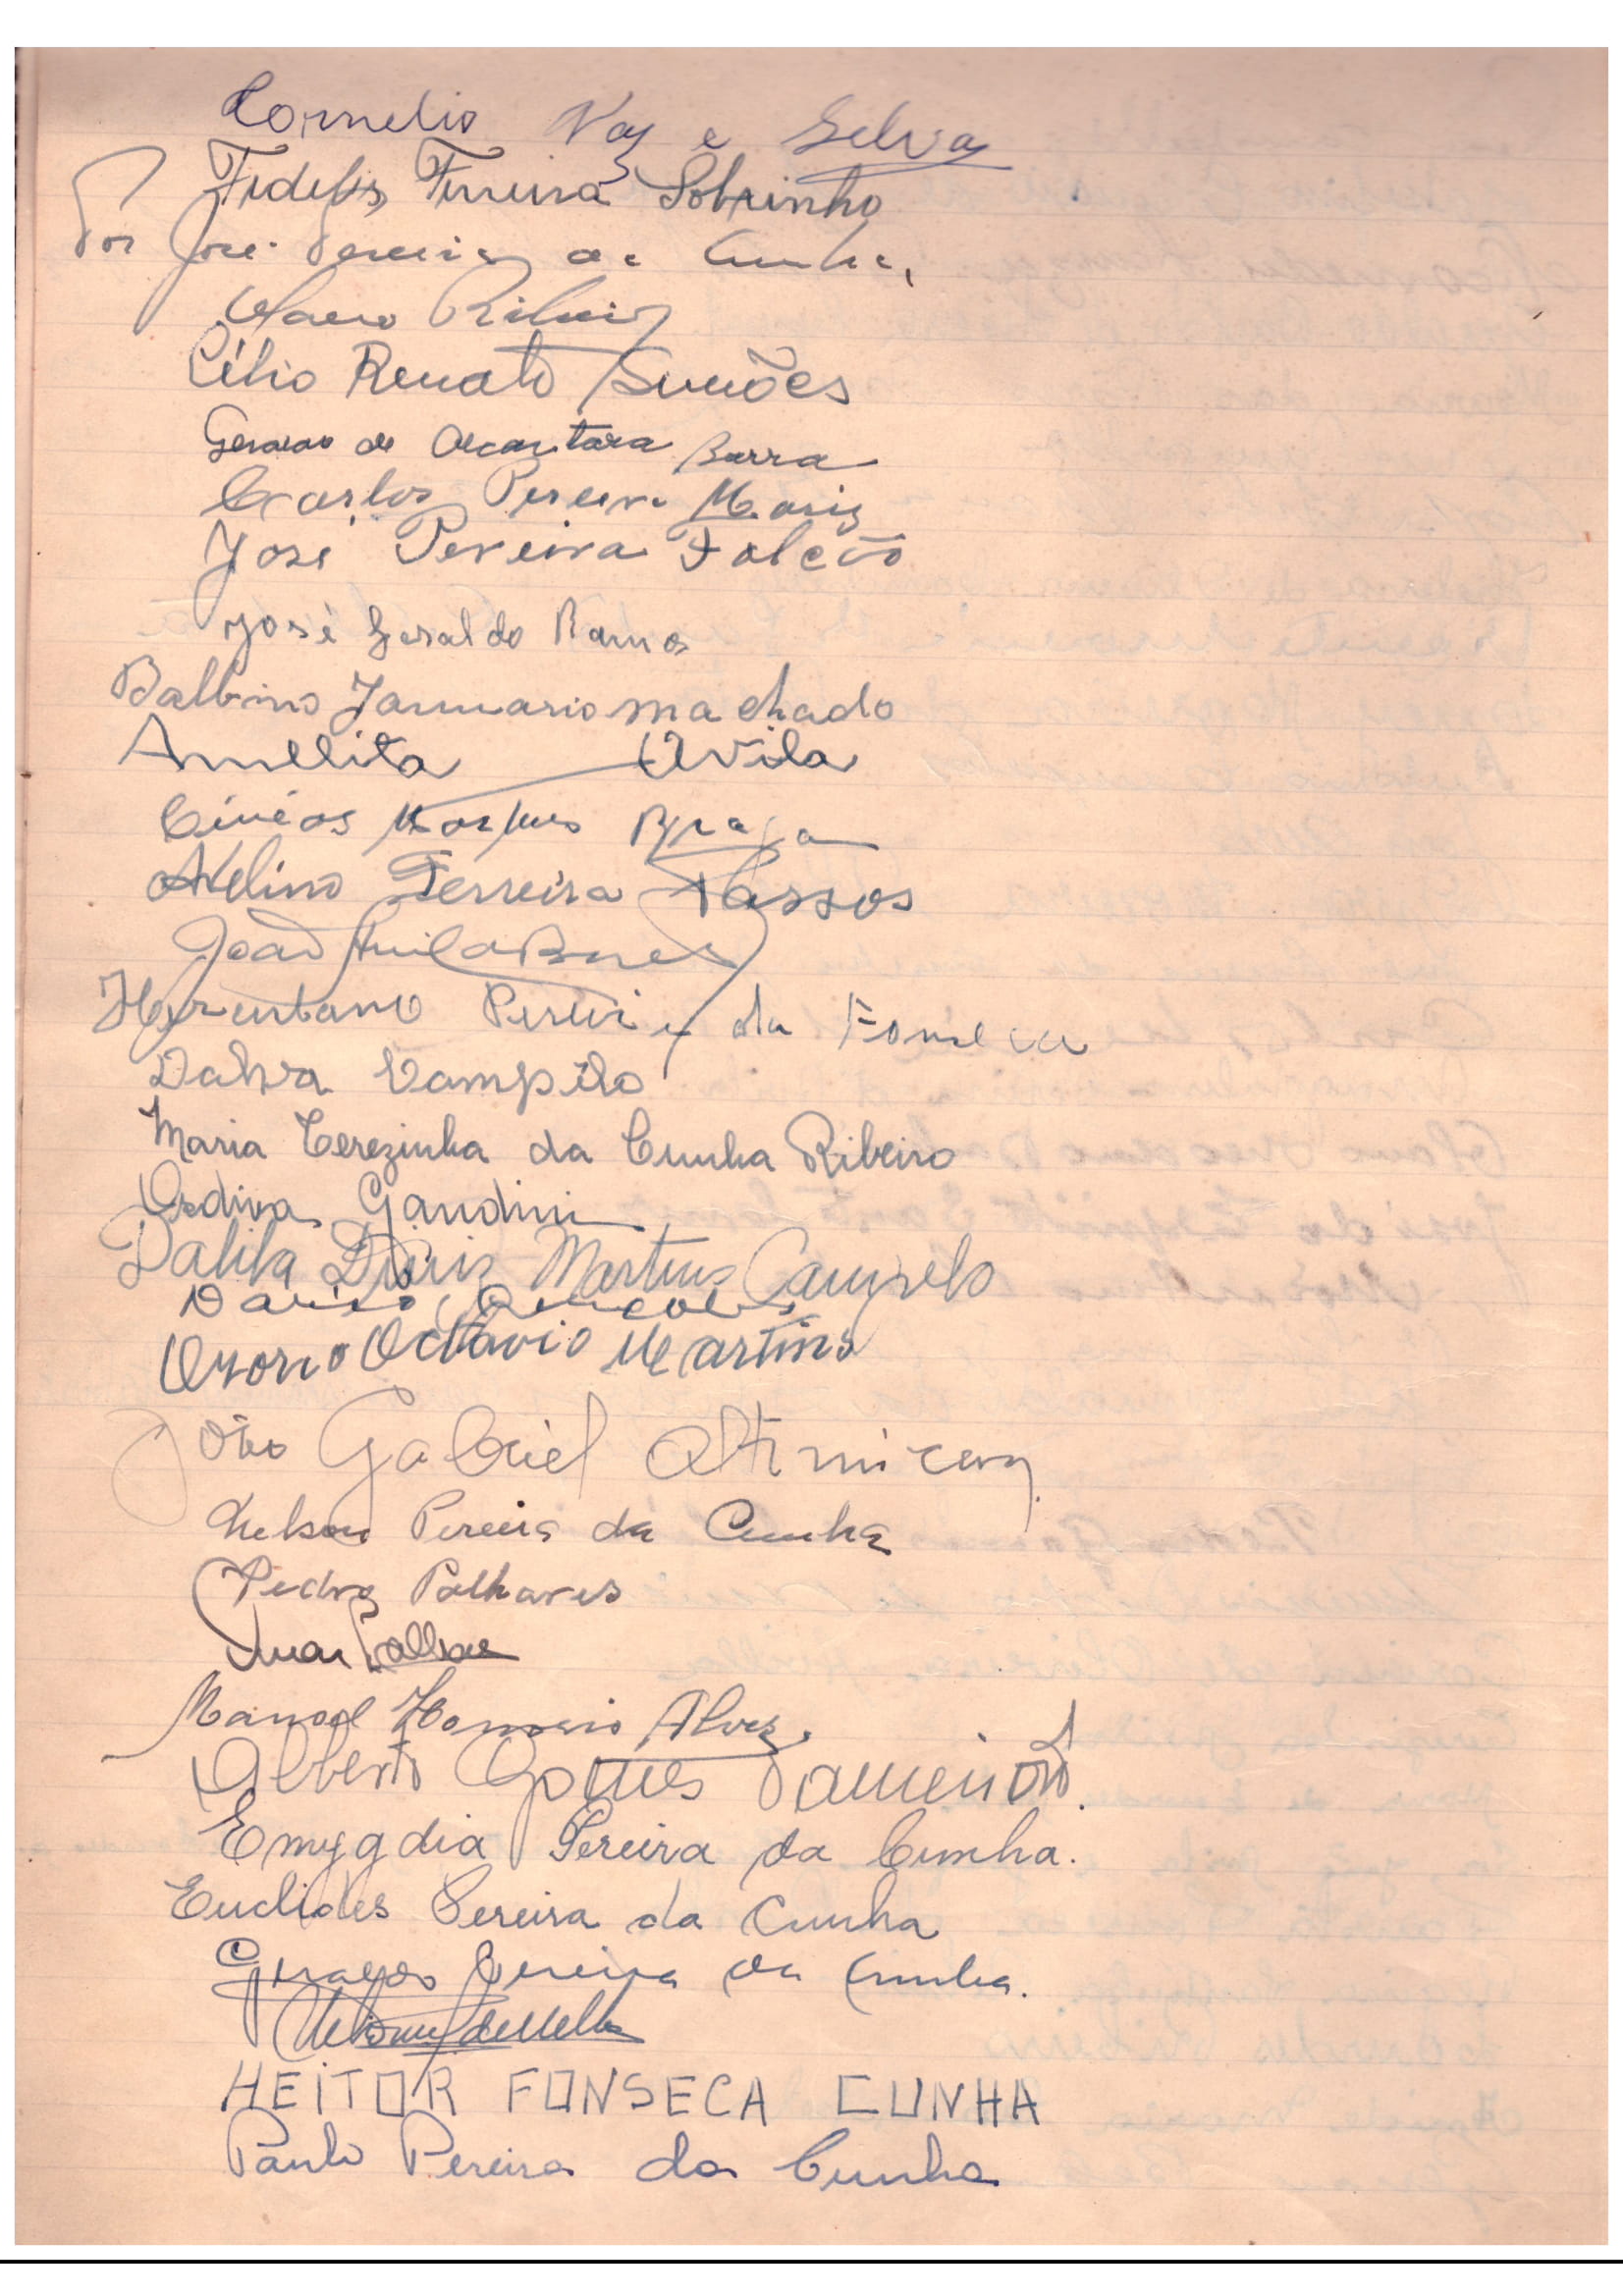 Cornelio Vaz e Selva
Fidelis Ferreira Sobrinho
Por José Pereira da Cunha,
Olavo Ribeiro
Célio Renato Simões
Geraldo de Alcantara Barra
Carlos Pereira Mariz
José Pereira Falcão
José Geraldo Ramos
Balbino Januario machado
Anullita Avila
Cinéas Marques Braga
Avelino Ferreira Passos
João
Herculano Pereira da Fonseca
Dalva Campélo
Maria Terezinha da Cunha Ribeiro
Ordiva Gandini
Dalila Diniz Martins Campelo
Dario
Ozorio Octavio Martins
João Gabriel
Nelson Pereira da Cunha
Pedro Palhares
Manoel Honorio Alves
Alberto Gomes
Emygdia Pereira da Cunha.
Euclides Pereira da Cunha
Pereira da Cunha.
HEITOR FONSECA CUNHA
Paulo Pereira da Cunha